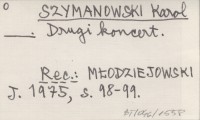 o
SZYMANOWSKI Karol
—. Drugi koncert.
Rec.: MŁODZIEJOWSKI
J. 1975, s. 98-99.